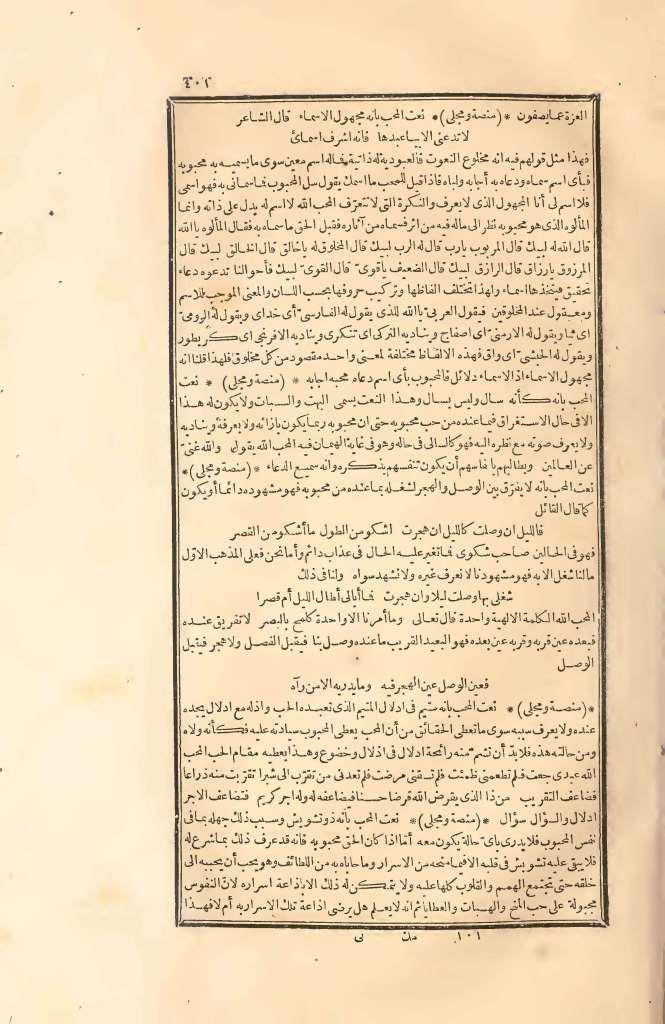 ٤٠١
العزة عما يصفون * (منصة ومجلى) * نعت المحب بأنه مجهول الاسماء قال الشاعر
لا تدعنى الا بيا عبدها فانه اشرف اسمائى
فهذا مثل قولهم فيه انه مخلوع النعوت فالعبودية له ذاتية فماله اسم معين سوى ما يسميه به محبوبه
فبأى اسم سماه ودعاه به أجابه ولباه فاذا قيل للمحب ما اسمك يقول سل المحبوب فما سمانى به فهو اسمى
فلا اسم لى أنا المجهول الذى لا يعرف والنكرة التى لا تتعرف المحب الله لا اسم له يدل على ذاته وانما
المألوه الذى هو محبوبه نظر الى ما له فيه من اثر فسماه من آثاره فقبل الحق ما سماه به فقال المألوه يا الله
قال الله له لبيك قال المربوب يا رب قال له الرب لبيك قال المخلوق له يا خالق قال الخالق لبيك قال
المرزوق يا رزاق قال الرازق لبيك قال الضعيف يا قوى قال القوى لبيك فأحوالنا تدعوه دعاء
تحقيق فيتخذها اسماء ولهذا تختلف الفاظها وتركيب حروفها بحسب اللسان والمعنى الموجب للاسم
ومعقول عند المخلوقين فيقول العربى يا الله للذى يقول له الفارسى أى خداى ويقول له الرومى
اى ثيا ويقول له الارمنى اى اصفاج ويناديه التركى اى تنكرى ويناديه الافرنجى اى كريطور
ويقول له الحبشى اى واق فهذه الالفاظ مختلفة لمعنى واحد مقصود من كل مخلوق فلهذا قلنا انه
مجهول الاسماء اذ الاسماء دلائل فالمحبوب بأى اسم دعاه محبه اجابه * (منصة ومجلى) * نعت
المحب بأنه كأنه سال وليس بسال وهذا النعت يسمى البهت والسبات ولا يكون له هذا
الا فى حال الاستغراق فيما عنده من حب محبوبه حتى ان محبوبه ربما يكون بازائه ولا يعرفه ويناديه
ولا يعرف صوته مع نظره اليه فهو كالسالى فى حاله وهو فى غاية الهيمان فيه المحب الله يقول والله غنى
عن العالمين ويطالبهم بانفاسهم أن يكون تنفسهم بذكره وانه سميع الدعاء * (منصة ومجلى) *
نعت المحب بأنه لا يفرق بين الوصل والهجر لشغله بما عنده من محبوبه فهو مشهوده دائما أو يكون
كما قال القائل
فالليل ان وصلت كالليل ان هجرت اشكو من الطول ما أشكو من القصر
فهو فى الحالين صاحب شكوى فما تغير عليه الحال فى عذاب دائم وأما نحن فعلى المذهب الاول
ما لنا شغل الا به فهو مشهودنا لا نعرف غيره ولا نشهد سواه ولنا فى ذلك
شغلى بها وصلت ليلا وان هجرت فما أبالى أطال الليل أم قصرا
المحب الله الكلمة الالهية واحدة قال تعالى وما أمرنا الا واحدة كلمح بالبصر لا تفريق عنده
فبعده عين قربه وقربه عين بعده فهو البعيد القريب ما عنده وصل بنا فيقبل الفصل ولا هجر فيقبل
الوصل
فعين الوصل عين الهجر فيه وما يدريه الا من رآه
* (منصة ومجلى) * نعت المحب بأنه متيم فى ادلال المتيم الذى تعبده الحب واذله مع ادلال يجده
عنده ولا يعرف سببه سوى ما تعطى الحقائق من أن المحب يعطى المحبوب سيادته عليه فكأنه ولاه
ومن حالته هذه فلا بد أن تشم منه رائحة ادلال فى اذلال وخضوع وهذا يعطيه مقام الحب المحب
الله عبدى جعت فلم تطعمنى ظمئت فلم تسقنى مرضت فلم تعدنى من تقرب الى شبرا تقربت منه ذراعا
فضاعف التقريب من ذا الذى يقرض الله قرضا حسنا فيضاعفه له وله اجر كريم فتضاعف الاجر
ادلال والسؤال سؤال * (منصة ومجلى) * نعت المحب بأنه ذو تشويش وسبب ذلك جهله بما فى
نفس المحبوب فلا يدرى بأى حالة يكون معه أما اذا كان الحق محبوبه فانه قد عرف ذلك بما شرع له
فلا يبقى عليه تشويش فى قلبه الا فيما منحه من الاسرار وما حاباه به من اللطائف وهو يحب أن يحببه الى
خلقه حتى تجتمع الهمم والقلوب كلها عليه ولا يتمكن له ذلك الا باذاعة اسراره لان النفوس
مجبولة على حب المنح والهبات والعطايا ثم انه لا يعلم هل يرضى اذاعة تلك الاسرار به أم لا فهذا
١٠١ مك نى